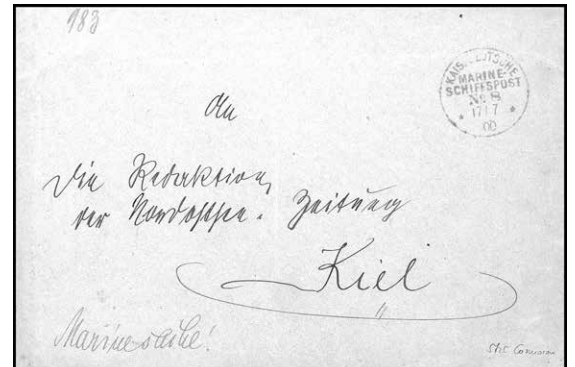 183
KAIS. DEUTSCHE
MARINE-
SCHIFFSPOST
No 8
* 17/7 *
00
An
Die Redaktion
der Nordostsee-Zeitung
Kiel
Marinesache!